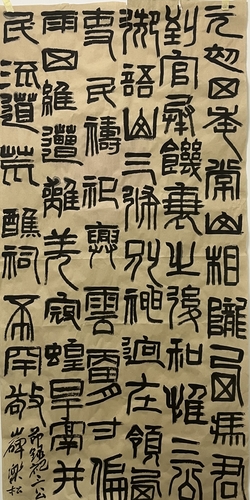 元初四年常山相隴西馮君
到官承饑衰之後和惟三公
御語山三條別神迥在領西
吏民禱祀興雲膚寸徧
雨四維遭離羌寇蝗旱鬲并
民流道荒醮祠希罕敬
節錄祀三公
山碑樂松